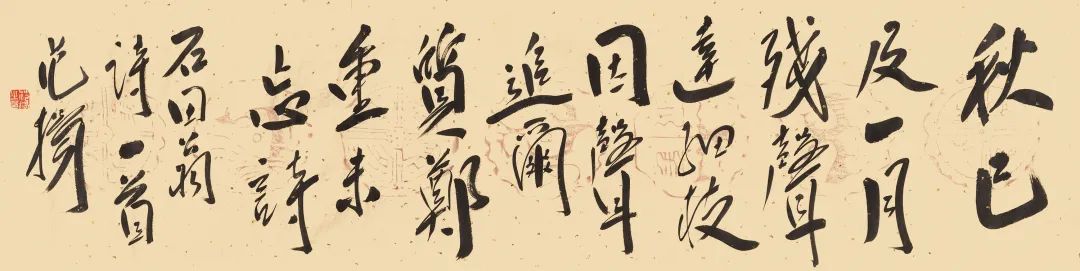 秋已
及一月
残聲
遶細枝
因聲
追爾
質鄭
重未
忘詩
石田翁
詩一首
范